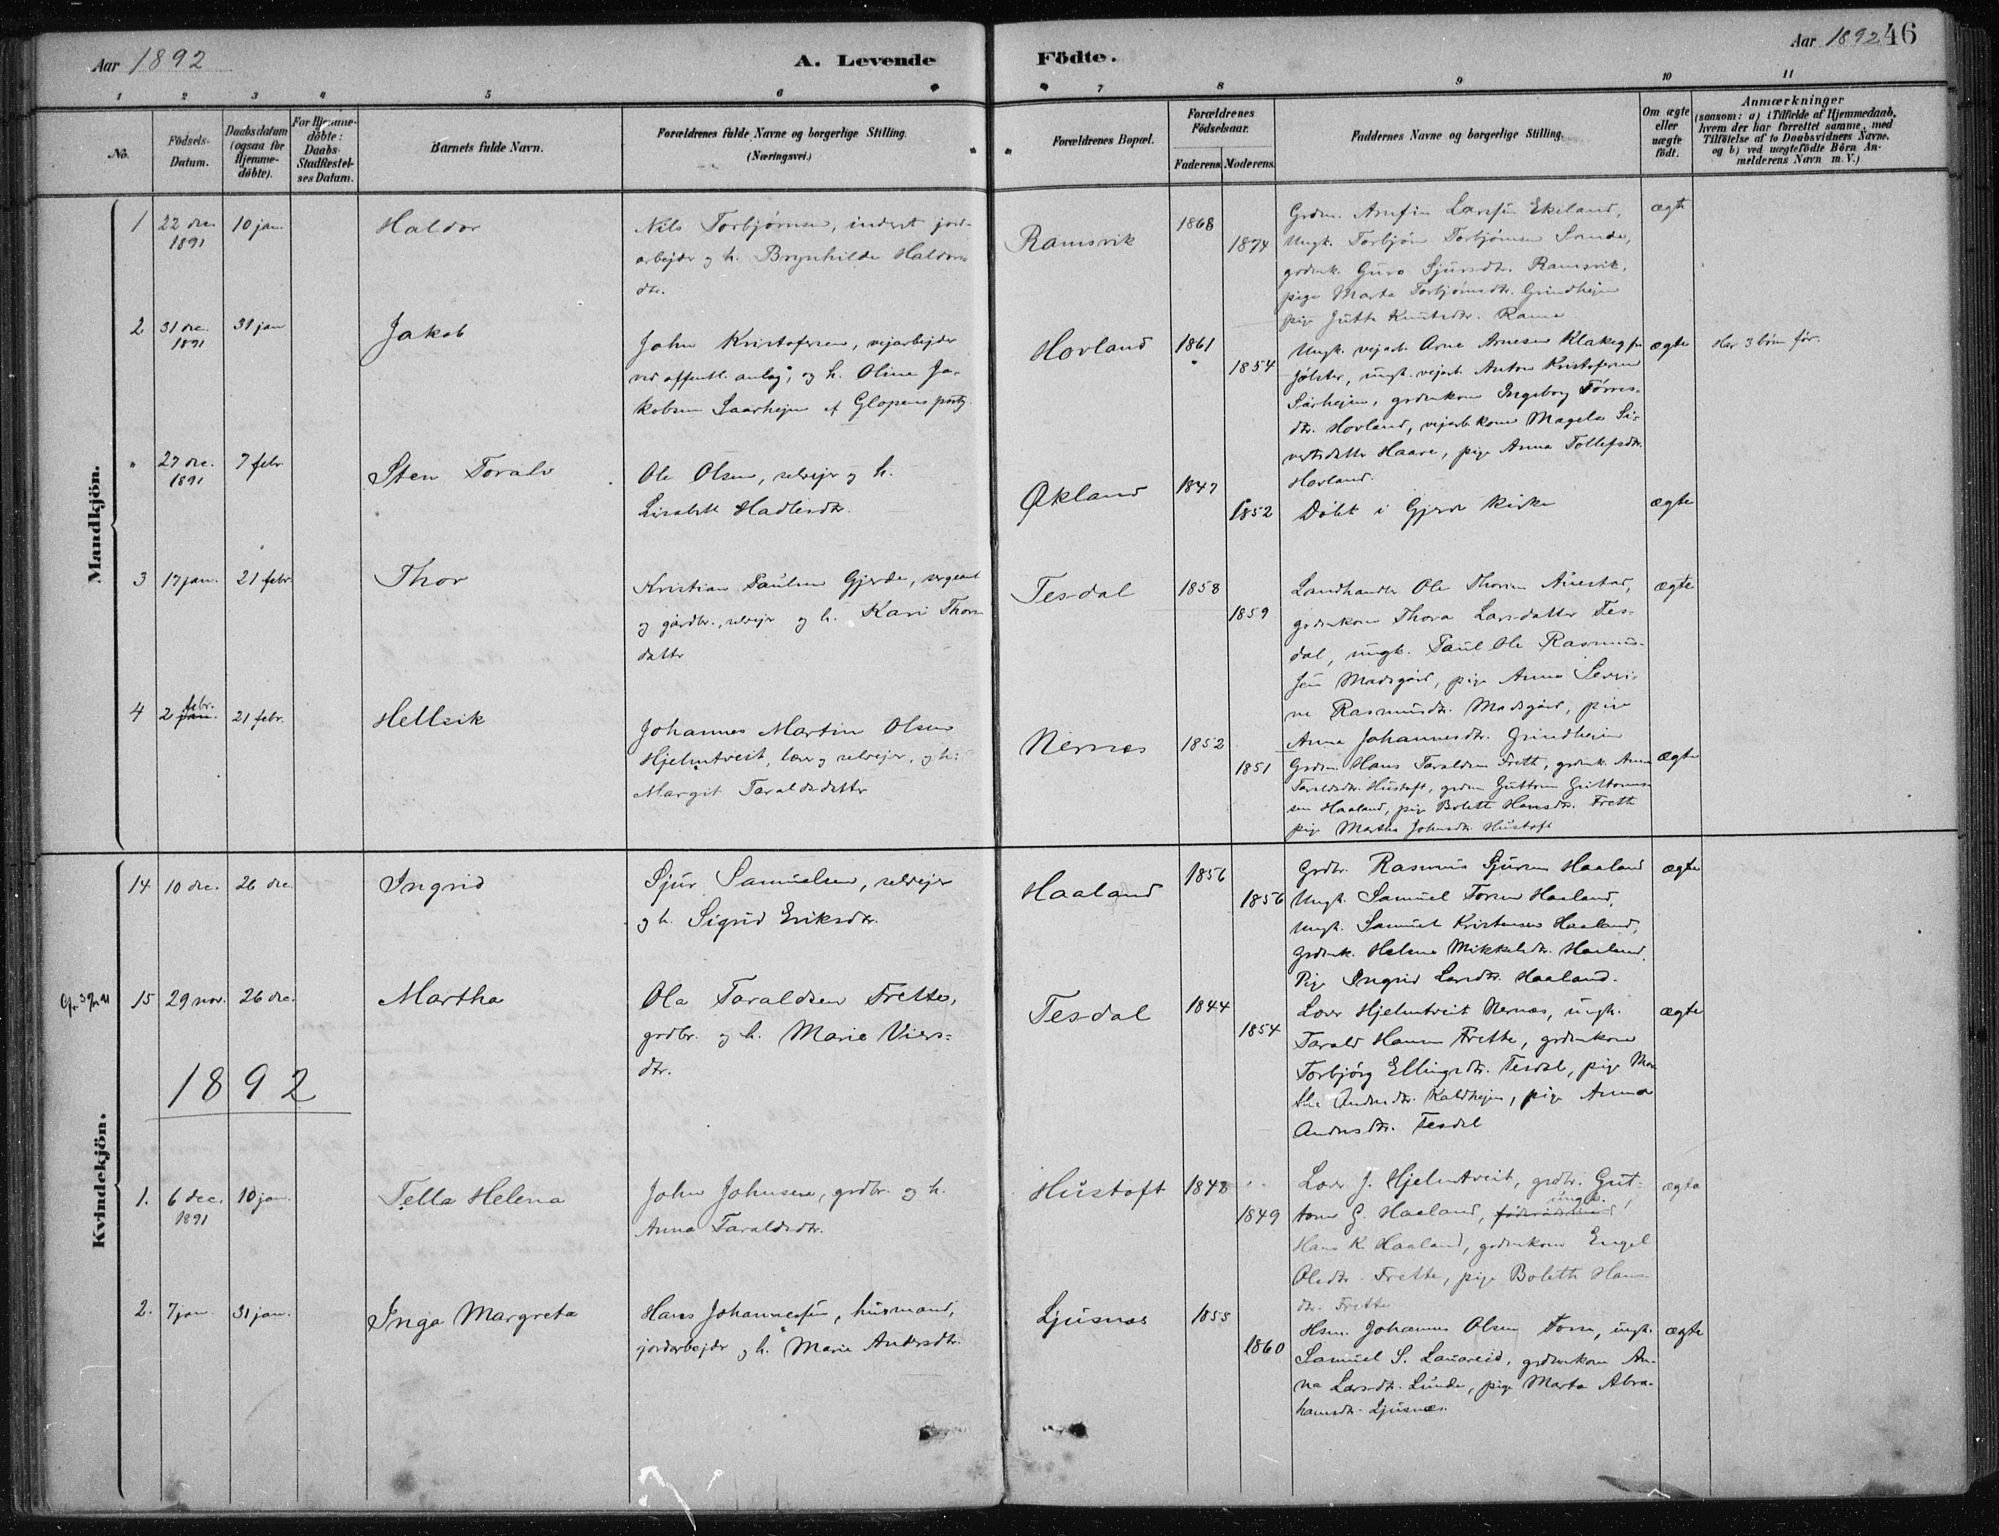 Aar 1892
A. Levende
Födte.
Aar 1892 46
1 2 3 4 5 6 7 8 9 10 11
No.
Födsels-Datum.
Daabsdatum (ogsaa for Hjemme-döbte).
For Hjemme-döbte: Daabs-Stadfæstel-ses Datum.
Barnets fulde Navn.
Forældrenes fulde Navne og borgerlige Stilling.
(Næringsvei.)
Forældrenes Bopæl.
Forældrenes Födselsaar.
Faderens. Moderens.
Faddernes Navne og borgerlige Stilling.
Om ægte eller uægte födt.
Anmærkninger
(saasom: a) i Tilfælde af Hjemmedaab, hvem der har forrettet samme, med Tilföielse af to Daabsvidners Navne, og b) ved uægtefödte Börn Anmelderens Navn m. V.)
Mandkjön.
1 22 dec 1891 10 jan Haldor
Nils Torbjørnsen, inderst jord-
arbejder og h. Brynhilde Haldors
dtr.
Ramsvik 1868 1874
Grdm. Arnfin Larsen Ekeland,
Ungk. Torbjørn Torbjørnsen Sande,
grdmk. Guro Sjursdtr. Ramsvik,
pige Marta Torbjørnsdtr. Grindhejm
pige Jutta Knutsdtr. Rame
ægte
2 31 dec. 1891 31 jan Jakob
John Kristofersen, vejarbejder
ved offentl. anlæg, og h. Oline Ja-
kobsen Saarhejm af Glopens pstg.
Hovland 1861 1854
Ungk. vejarb. Arne Arnesen Klakegg fra
Jølster, ungk. vejarb. Anton Kristofersen
Sårhejm, grdmkone Ingeborg Tørres-
dtr. Hovland, vejarbkone Magela Si-
vertsdatter Haare, pige Anna Tollefsdtr.
Hovland.
ægte Har 3 børn før.
" 27 dec. 1891 7 febr. Sten Toralv
Ole Olsen, selvejer og h.
Lisabeth Hadlesdtr.
Økland 1847 1852
Døbt i Gjerde kirke
ægte
3 17 jan. 21 febr. Thor
Kristian Paulsen Gjerde, sergeant
og gårdbr., selvejer og h. Kari Thors
datter
Tesdal 1858 1859
Landhandler Ole Thorsen Auestad,
grdmkone Thora Larsdatter Tes-
dal, ungk. Paul Ole Rasmus-
sen Madsgård, pige Anna Seve-
ne Rasmusdtr. Madsgård, pige
Anna Johannesdtr. Grindhejm
ægte
4 2 febr. 21 febr. Hellvik
Johannes Martin Olsen
Hjelmtveit, lærer og selvejer, og h.
Margit Taraldsdatter
Nernæs 1852 1851
Grdm. Hans Taraldsen Frette, grdmk. Anna
Taraldsdtr. Hustoft, grdm Guttorm Guttorms-
sen Haaland, pige Bolett Hansdtr. Frette
pige Martha Johnsdtr. Hustoft
ægte
Kvindekjön.
14 10 dec. 26 dec. Ingrid
Sjur Samuelsen, selvejer
og h. Sigrid Eriksdtr.
Haaland 1856 1856
Grdbr. Rasmus Sjursen Haaland
Ungk. Samuel Torsen Haaland,
Ungk. Samuel Kristensen Haaland,
Grdmk. Helene Mikkelsdtr. Haaland,
Pige Ingrid Larsdtr. Haaland.
ægte
15 29 nov. 26 dec. Martha
Ola Taraldsen Frette,
grdbr. og h. Marie Viers-
dtr.
Tesdal 1844 1854
Lærer Hjelmtveit Nernæs, ungk.
Tarald Hansen Frette, grdmkone
Torbjørg Ellingsdtr. Tesdal, pige Mar-
tha Andersdtr. Kaldhejm, pige Anna
Andersdtr. Tesdal
ægte
1892
1. 6 dec. 1891 10 jan. Tella Helena
John Johnsen, grdbr. og h.
Anna Taraldsdtr.
Hustoft 1848 1849
Lærer J. Hjelmtveit, grdbr. Gut-
torm G. Haaland, ungk.
Hans K. Haaland, grdmkone Engel
Olsdtr. Frette, pige Boleth Hans-
dtr. Frette
ægte
2. 7 jan. 31 jan. Inga Margreta
Hans Johannessen, husmand,
jordarbejder og h. Marie Andersdtr.
Ljusnæs 1855 1860
Hsm. Johannes Olsen Torsn, ungk.
Samuel S. Lauareid, grdmkone An-
na Larsdtr. Lunde, pige Marta Abra-
hamsdtr. Ljusnæs.
ægte